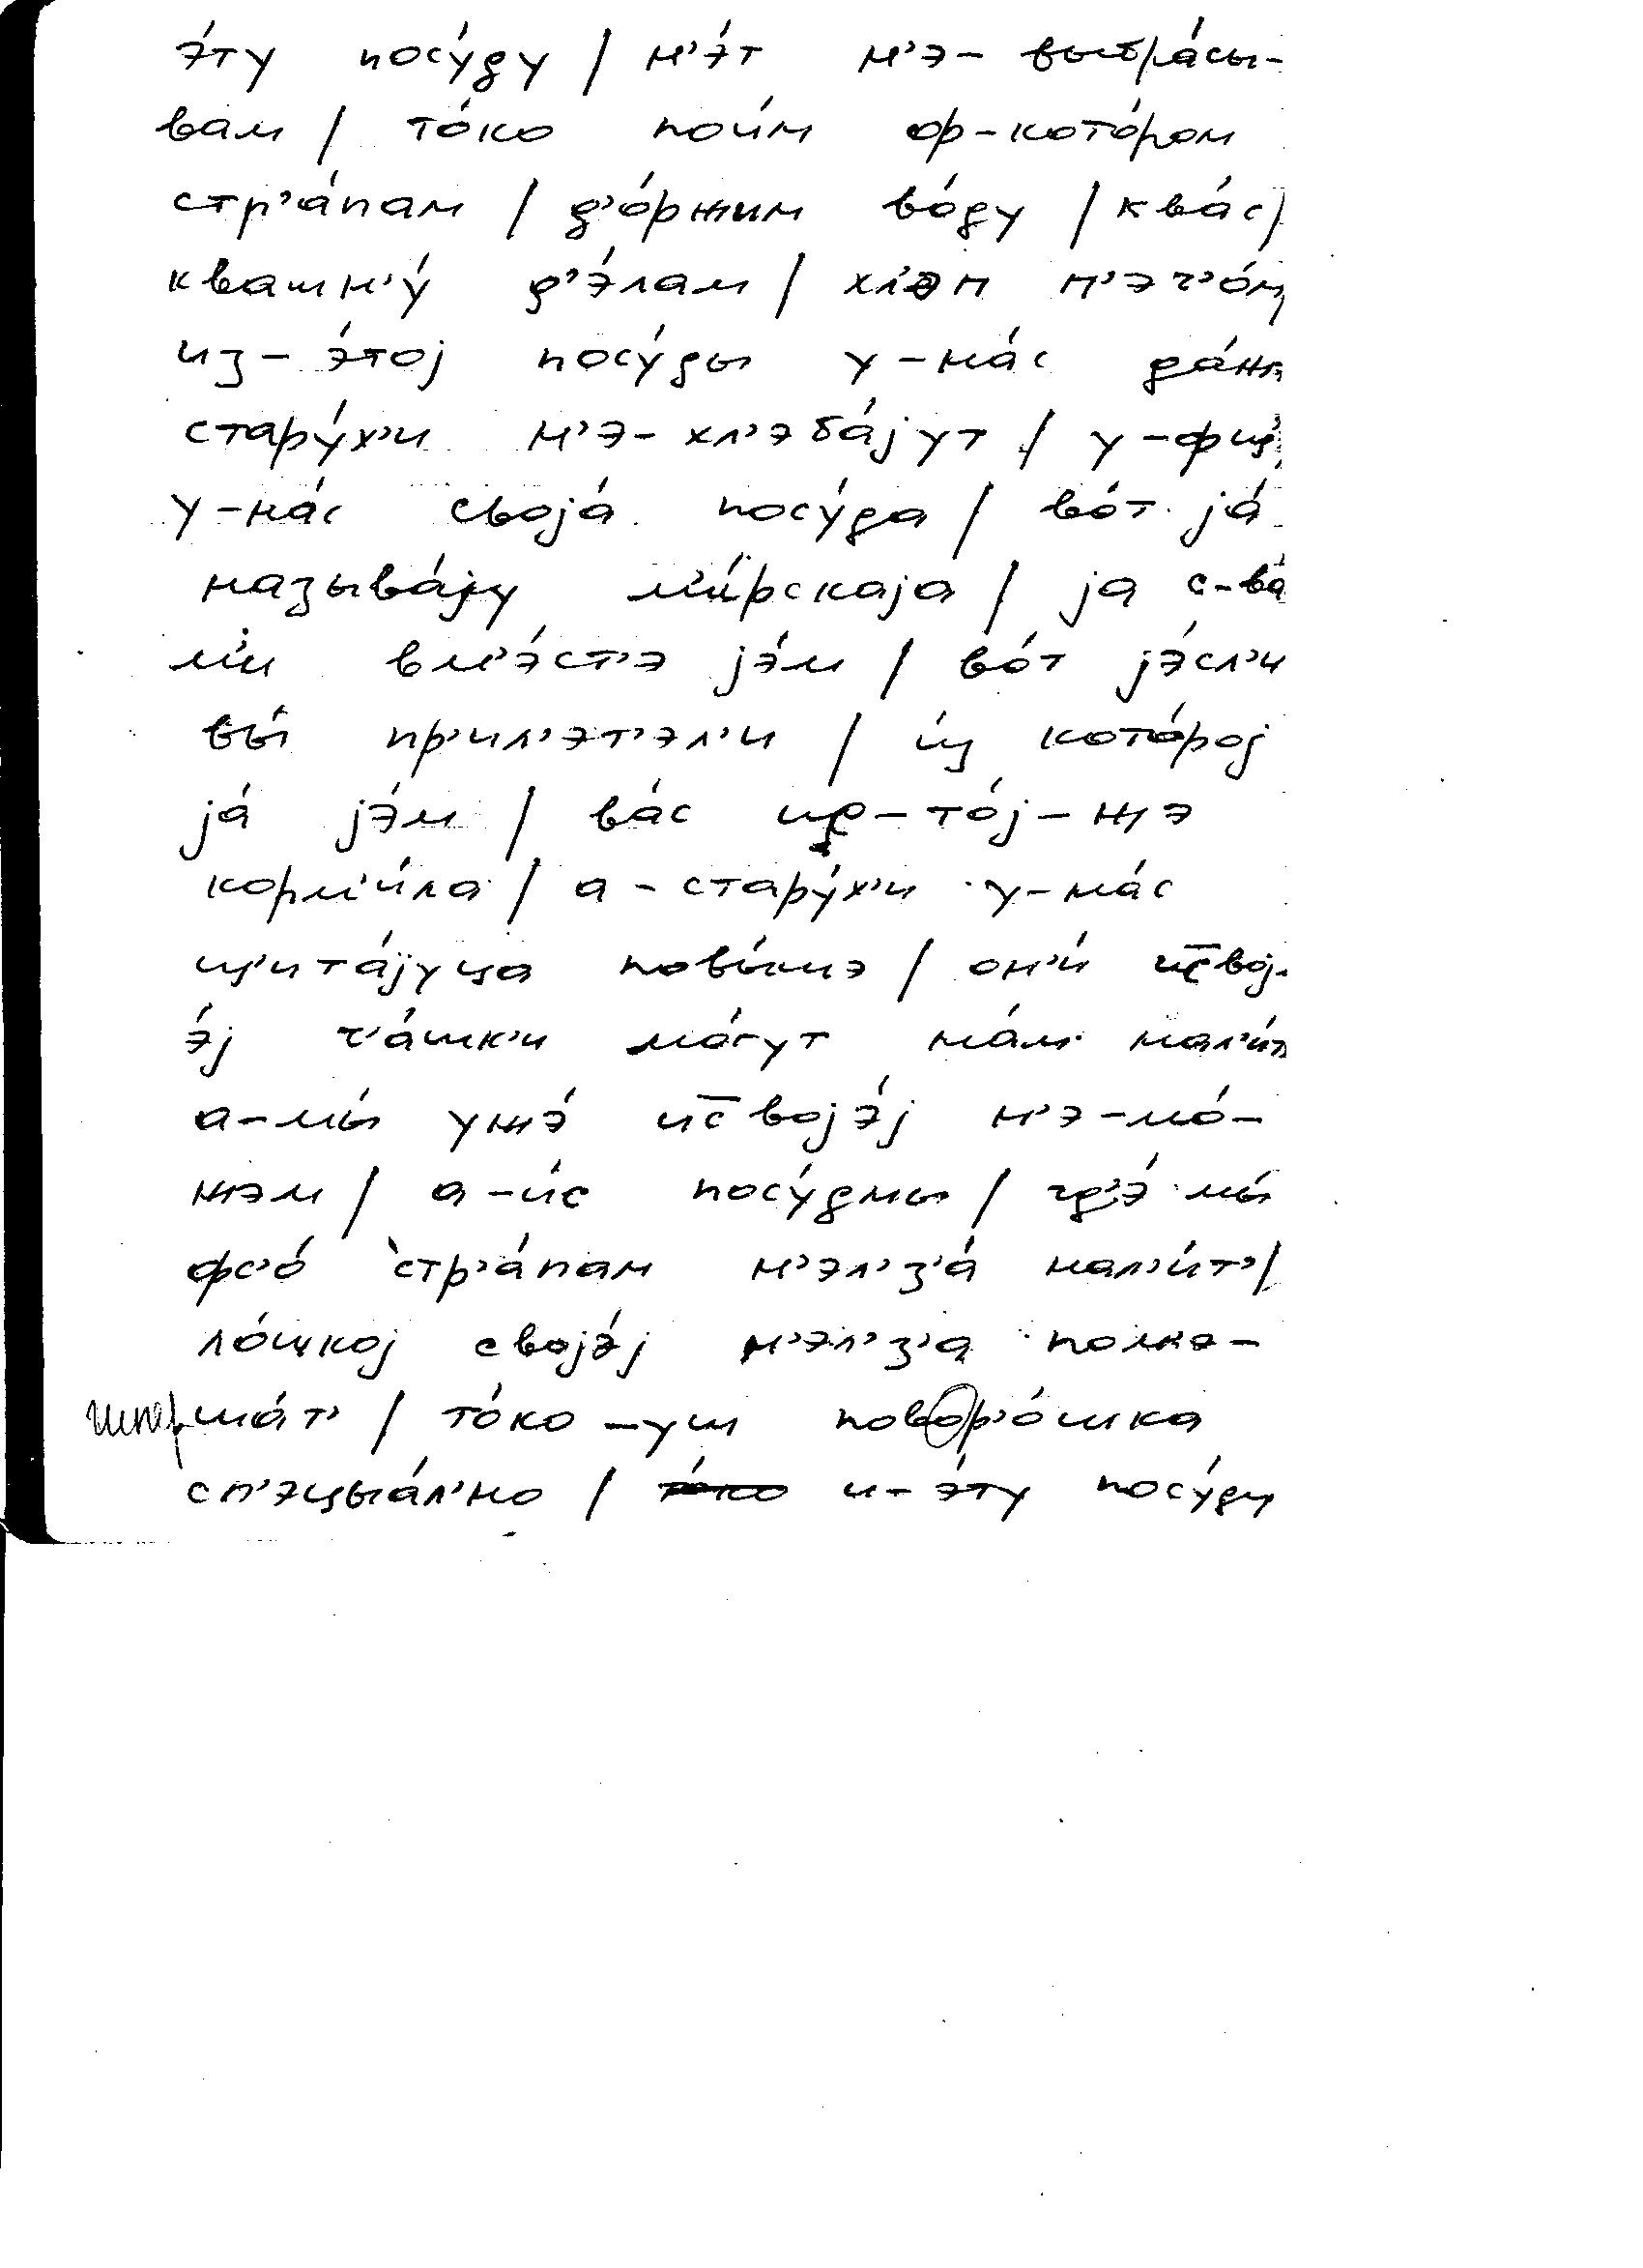 э́ту посу́ду / н'э́т н'э- выбра́сы-
вам / то́ко пои́м ф-кото́ром
стр'а́пам / д'о́ржим во́ду / ква́с /
квашн'у́ д'э́лам / хл'э́п п'эч'о́м
из- э́тој посу́ды у-на́с да́жэ
стару́х'и н'э- хл'эба́јут / у-фц'
у-на́с своја́ посу́да / во́т ја́
называ́ју м'и́рскаја / ја с-ва́
м'и вм'э́ст'э јэ́м / во́т јэ́сл'и
вы́ пр'ил'эт'эл'и / и́з кото́рој
ја́ јэ́м / ва́с ис-то́ј-жэ
корм'и́ла / а-стару́х'и у-на́с
щ'ита́јуца повы́шэ / он'и́ исвој-
э́ј ч'а́шк'и мо́гут на́м нал'и́т'
а-мы́ ужэ́ исвојэ́ј н'э-мо́-
жэм / а-и́с посу́дны / гд'э́ мы́
фс'о́ стр'а́пам н'эл'з'а́ нал'и́т' /
ло́шкој својэ́ј н'эл'з'а помэ-
ша́т' / то́ко -уш повор'о́шка
сп'эцыа́л'но / то́ко и-э́ту посу́ду